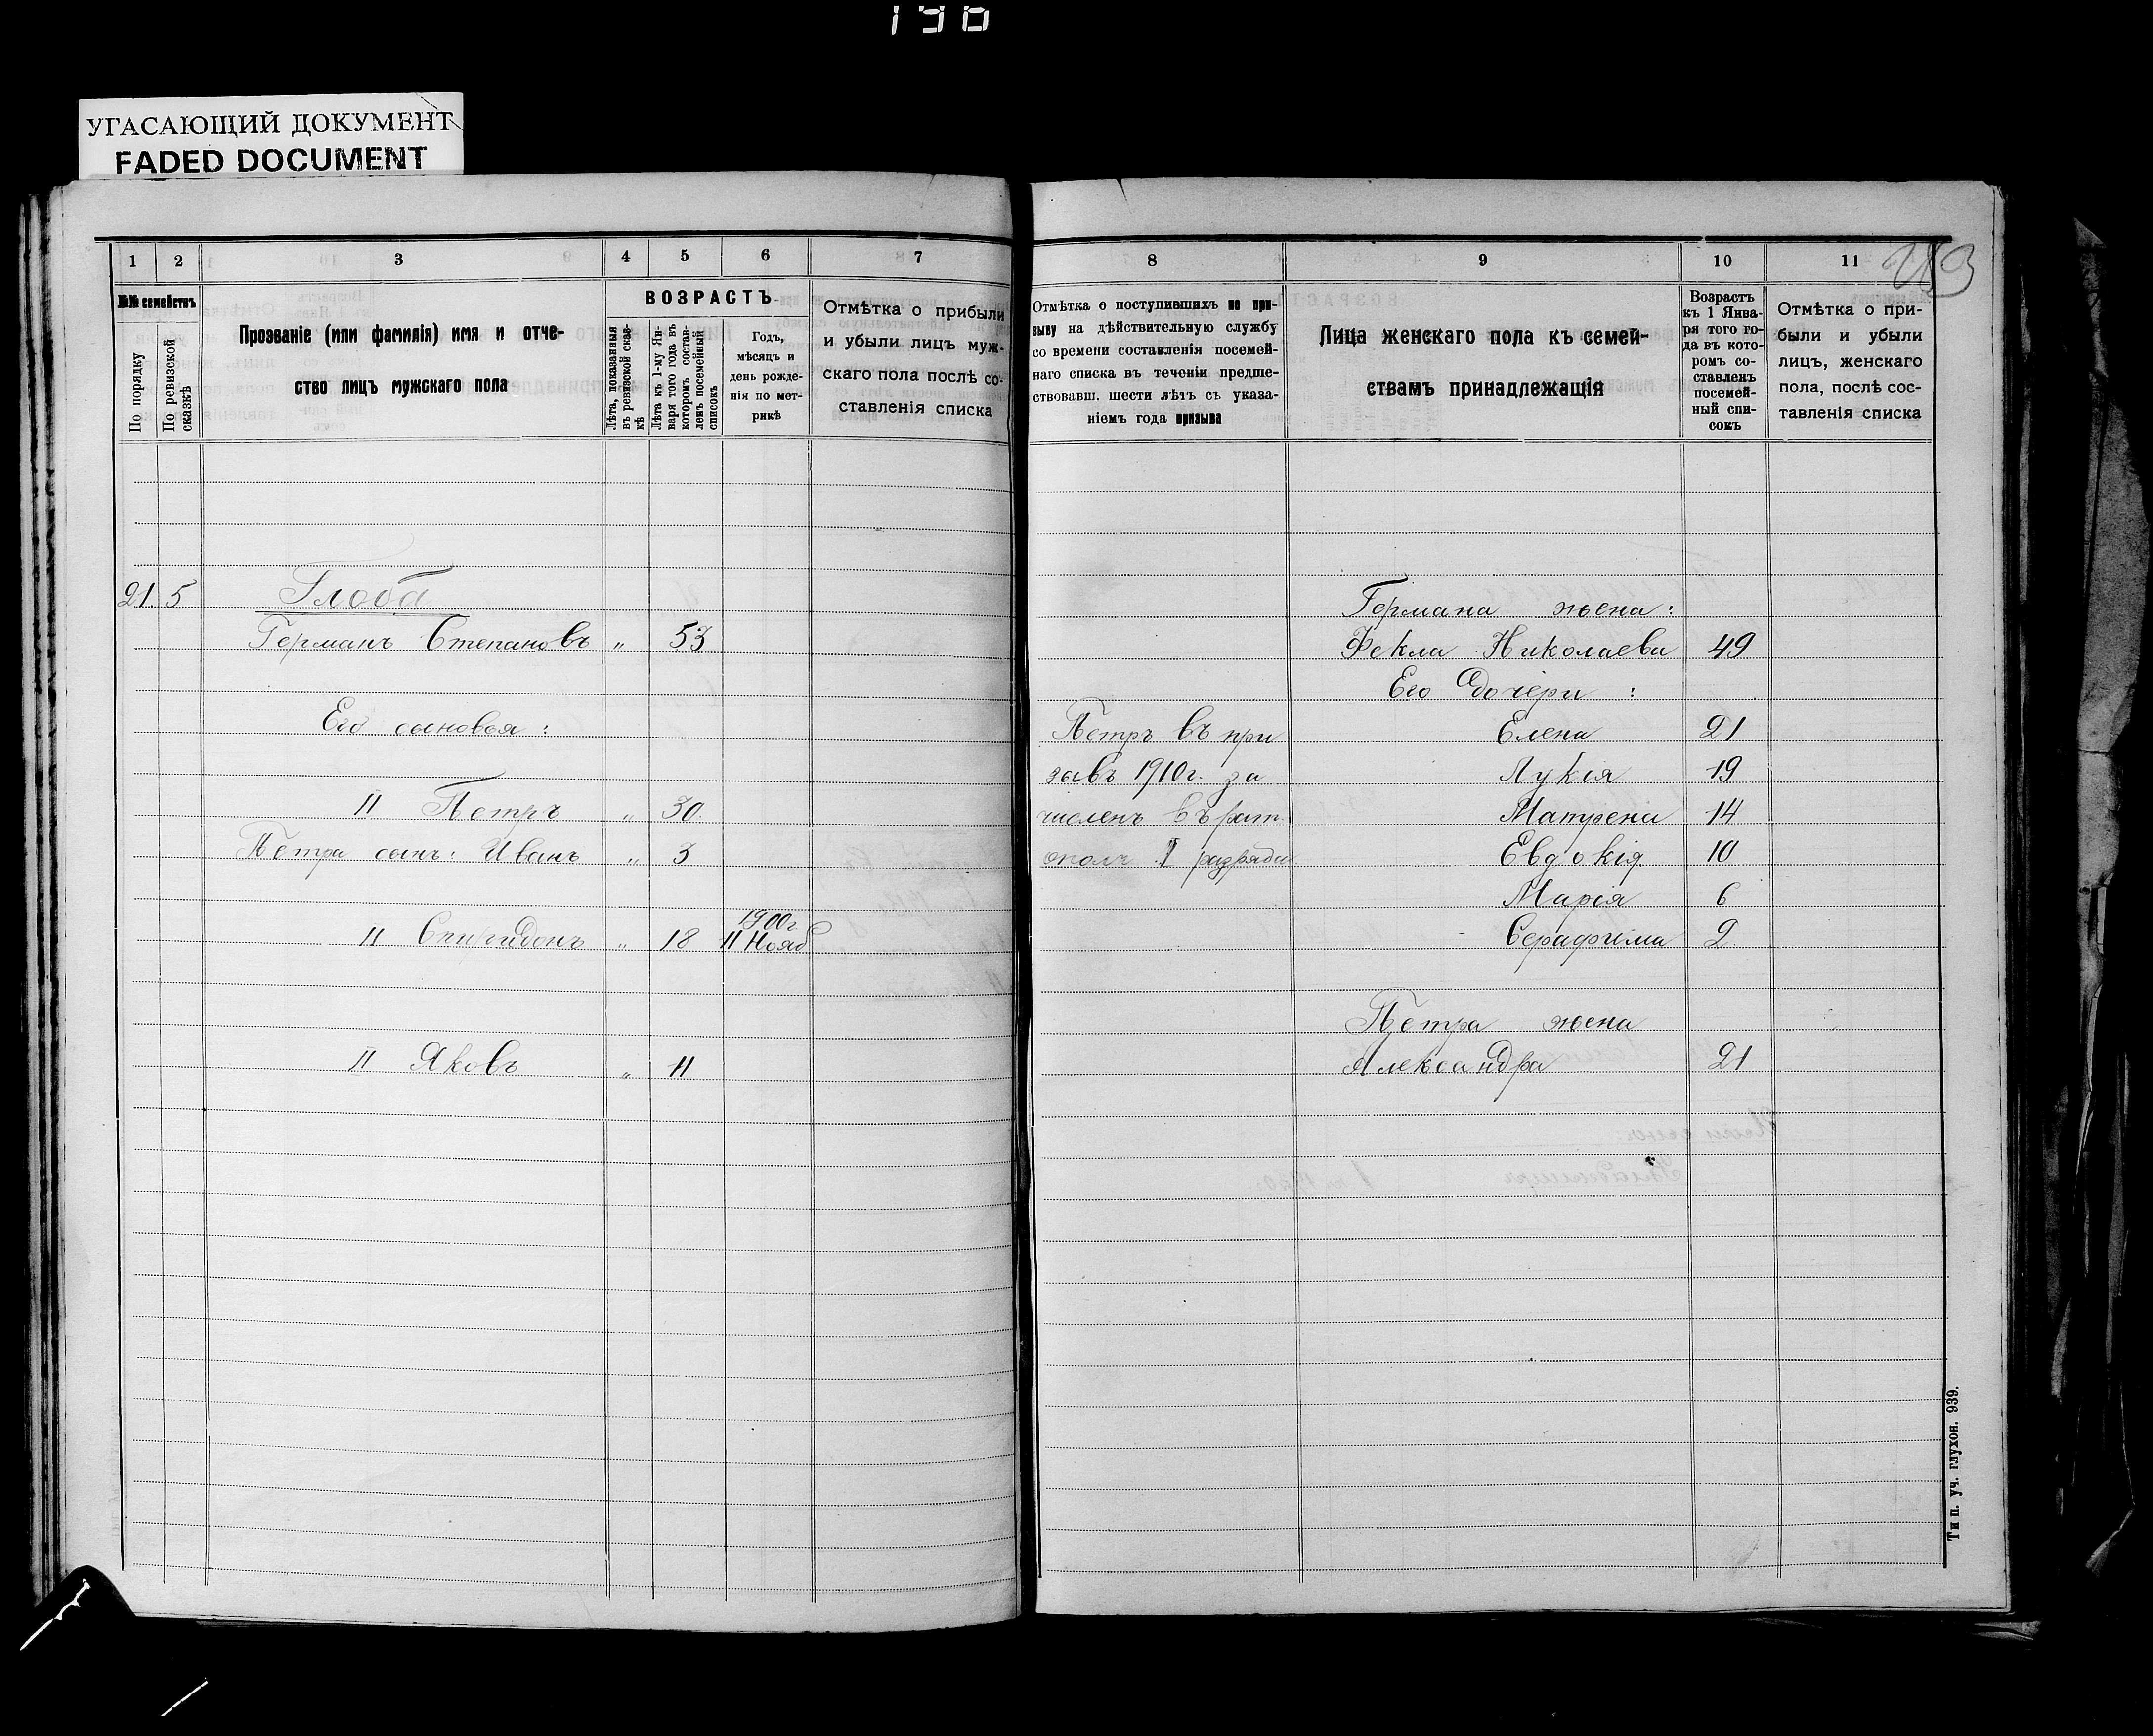 196
УГАСАЮЩИЙ ДОКУМЕНТ
FADED DOCUMENT
1 2 3 4 5 6 7
№№ семействъ
По порядку
По ревизской сказкѣ
Прозваніе (или фамилія) имя и отче-
ство лицъ мужскаго пола
ВОЗРАСТЪ
Лѣта, показанныя
въ ревизской сказ-
кѣ
Лѣта къ 1-му Ян-
варя того года въ
которомъ состав-
ленъ посемейный
списокъ
Годъ,
мѣсяцъ и
день рожде-
нія по мет-
рикѣ
Отмѣтка о прибыли
и убыли лицъ муж-
скаго пола послѣ со-
ставленія списка
21 5 Глоба
Германъ Степановъ „ 53
Его сыновья:
II Петръ „ 30
Петра сынъ: Иванъ „ 3
1900г.
II Спиридонъ „ 18 11 Нояб
II Яковъ „ 11
8 9 10 11
213
Отмѣтка о поступившихъ по при-
зыву на дѣйствительную службу
со времени составленія посемей-
наго списка въ теченіи предше-
ствовавш. шести лѣтъ съ указа-
ніемъ года призыва
Лица женскаго пола къ семей-
ствамъ принадлежащія
Возрастъ
къ 1 Янва-
ря того го-
да въ кото-
ромъ со-
ставленъ
посемей-
ный спи-
сокъ
Отмѣтка о при-
были и убыли
лицъ, женскаго
пола, послѣ сос-
тавленія списка
Германа жена:
Фекла Николаева 49
Его дочери:
Петръ въ при Елена 21
зывъ 1910г. за Лукія 19
численъ въ рат. Матрена 14
ополч. I разряда Евдокія 10
Марія 6
Серафима 2
Петра жена
Александра 21
Тип. уч. глухон. 939.